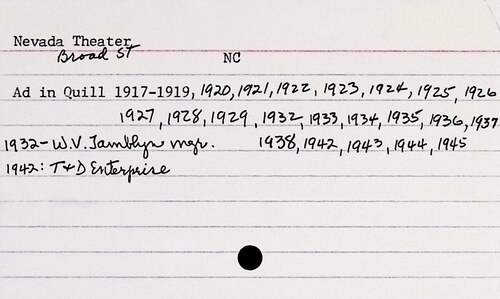 Nevada Theater
Broad St
NC
Ad in Quill 1917-1919, 1920, 1921, 1922, 1923, 1924, 1925, 1926
1927, 1928, 1929, 1932, 1933, 1934, 1935, 1936, 1937
1932- W.V. Tamblyn mgr. 1938, 1942, 1943, 1944, 1945
1942: T&D Enterprise